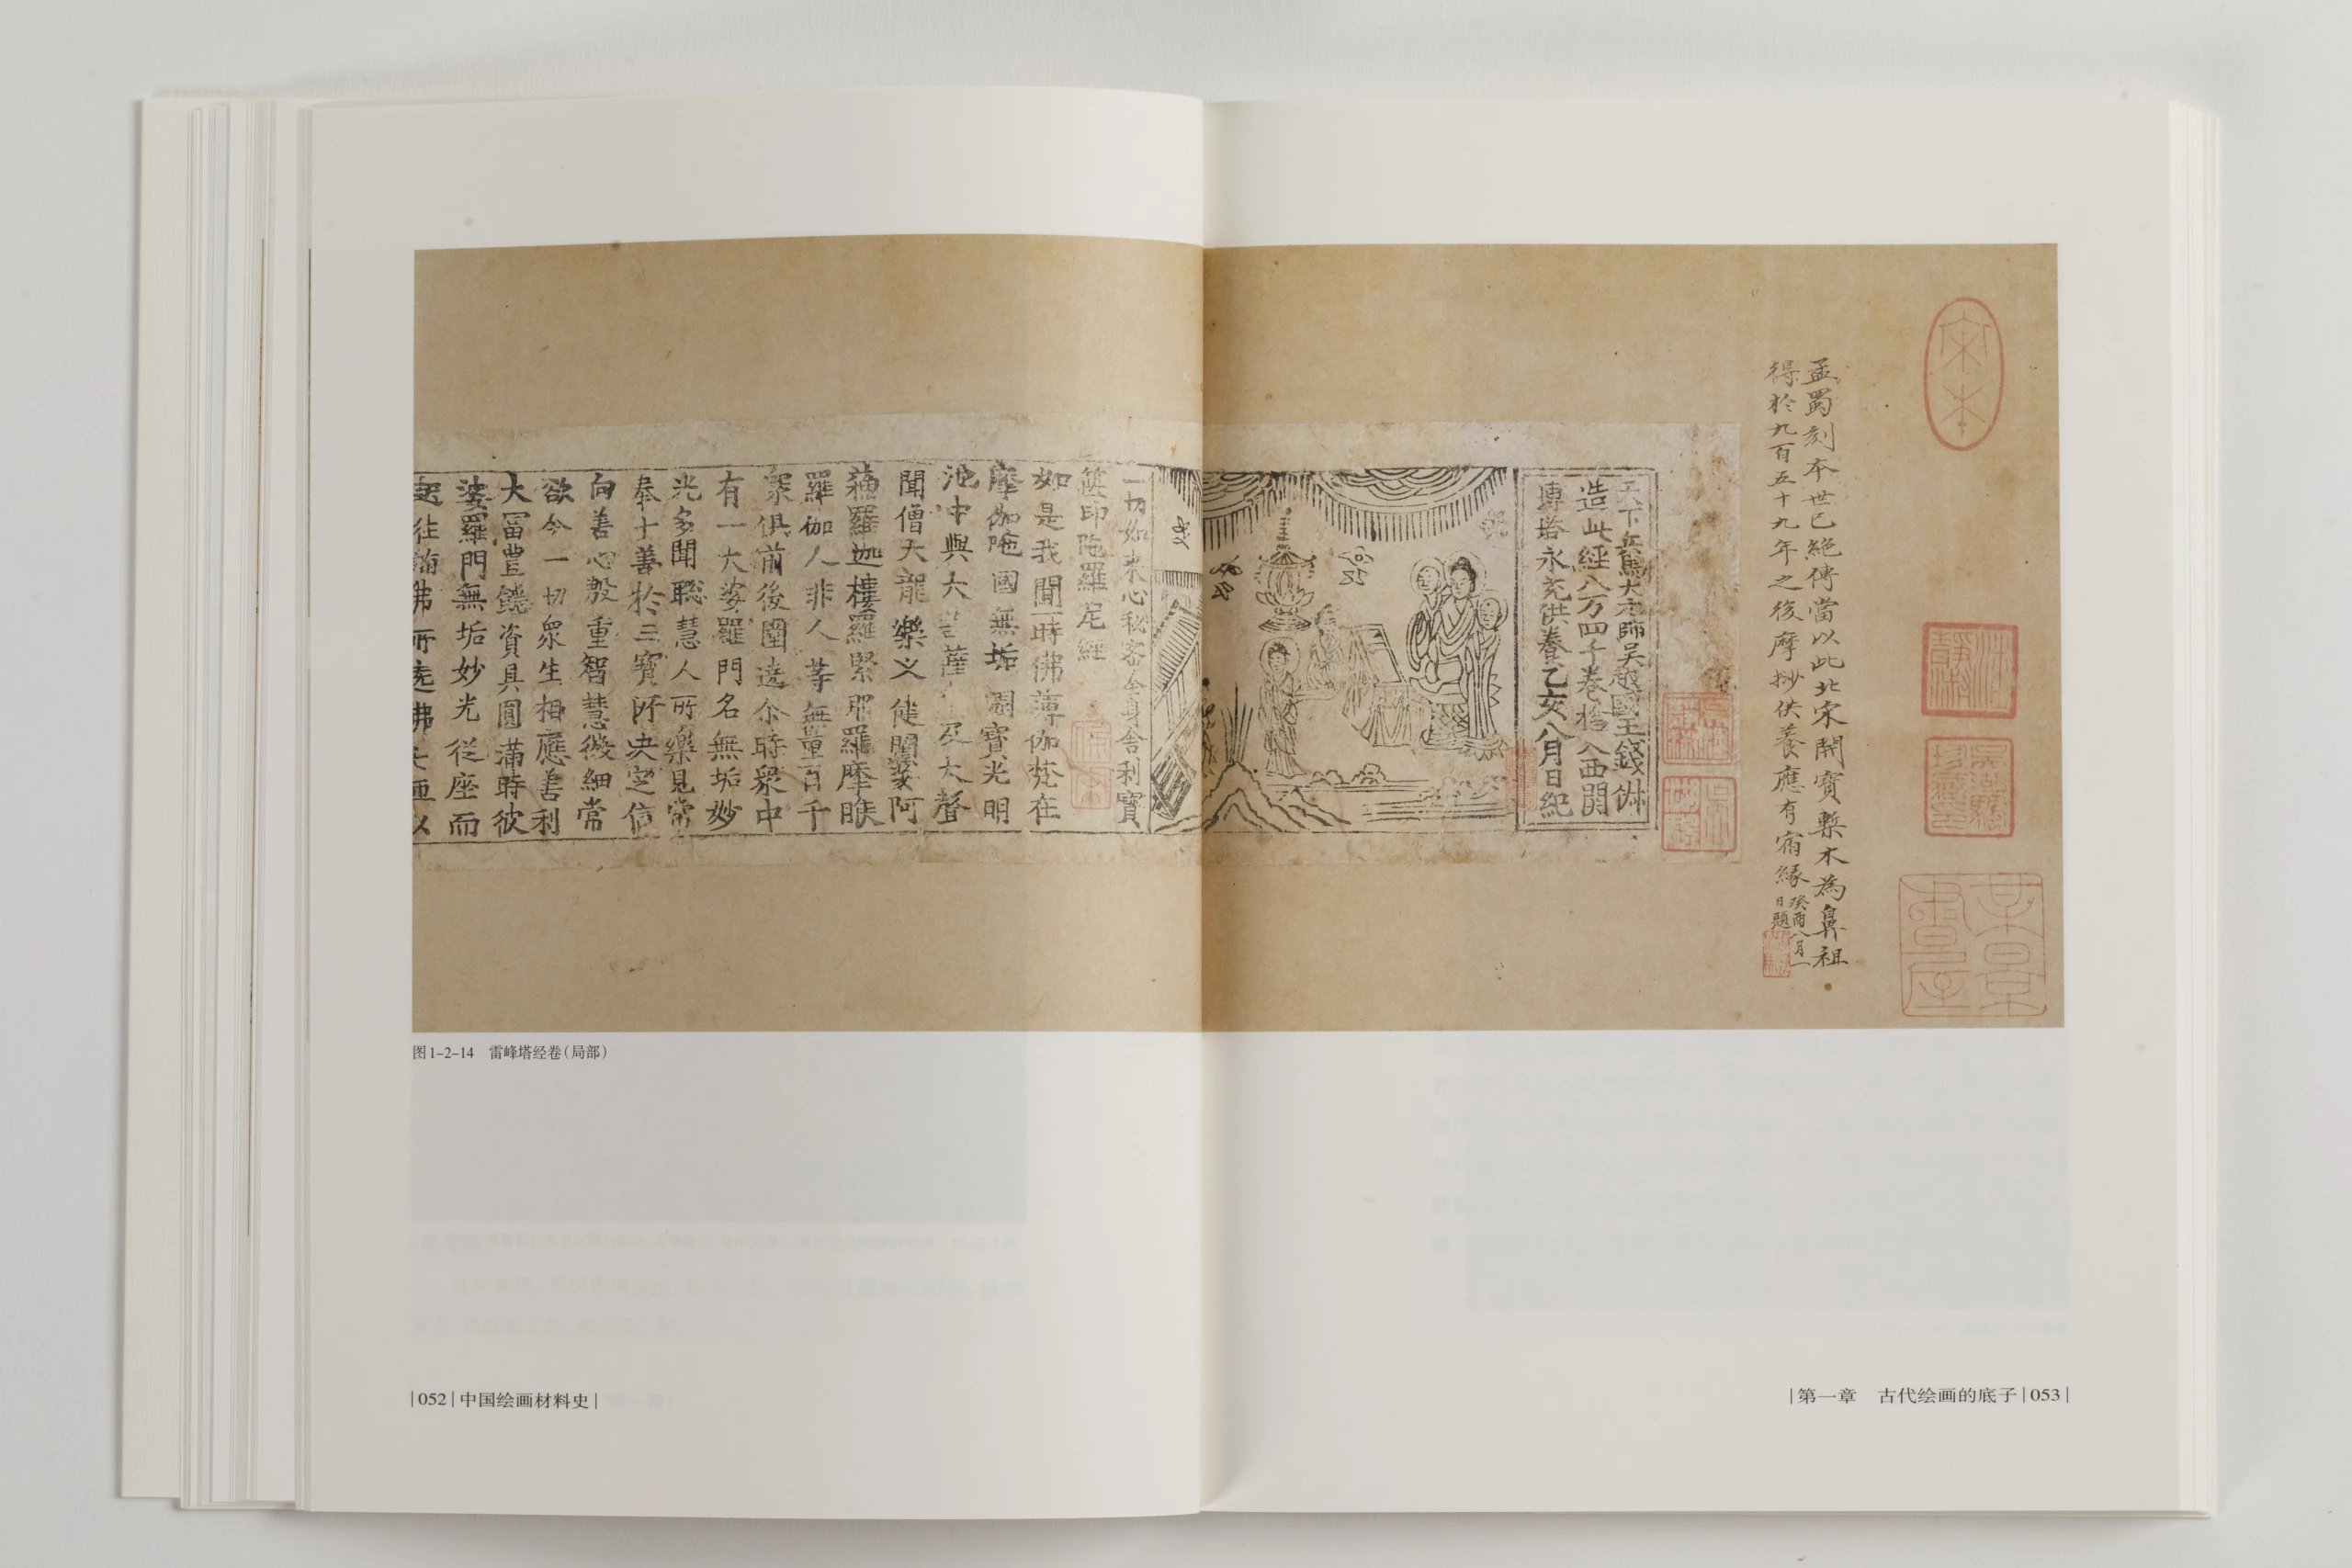 宋本
某景書屋
孟蜀刻本世已絕傳當以此北宋開寶槧木為鼻祖
得於九百五十九年之後摩挱供養應有宿緣
癸酉八月一
日題
天下兵馬大元帥吳越國王錢俶
造此經八万四千卷捨入西關
塼塔永充供養乙亥八月日紀
一切如来心秘密全身舍利寶
篋印陁羅尼經
如是我聞一時佛薄伽梵在
摩伽陁國無垢園寶光明
池中與大菩薩及大聲
聞僧天龍藥叉健闥婆阿
蘇羅迦樓羅緊那羅摩睺
羅伽人非人等無量百千
衆俱前後圍遶尒時衆中
有一大婆羅門名無垢妙
光多聞聰慧人所樂見常
奉十善於三寶所决定信
向善心殷重智慧微細常
欲令一切衆生相應善利
大富豐饒資具圓滿時彼
婆羅門無垢妙光從座而
起往詣佛所遶佛七匝以
图1-2-14　雷峰塔经卷（局部）
|052|中国绘画材料史|
|第一章　古代绘画的底子|053|